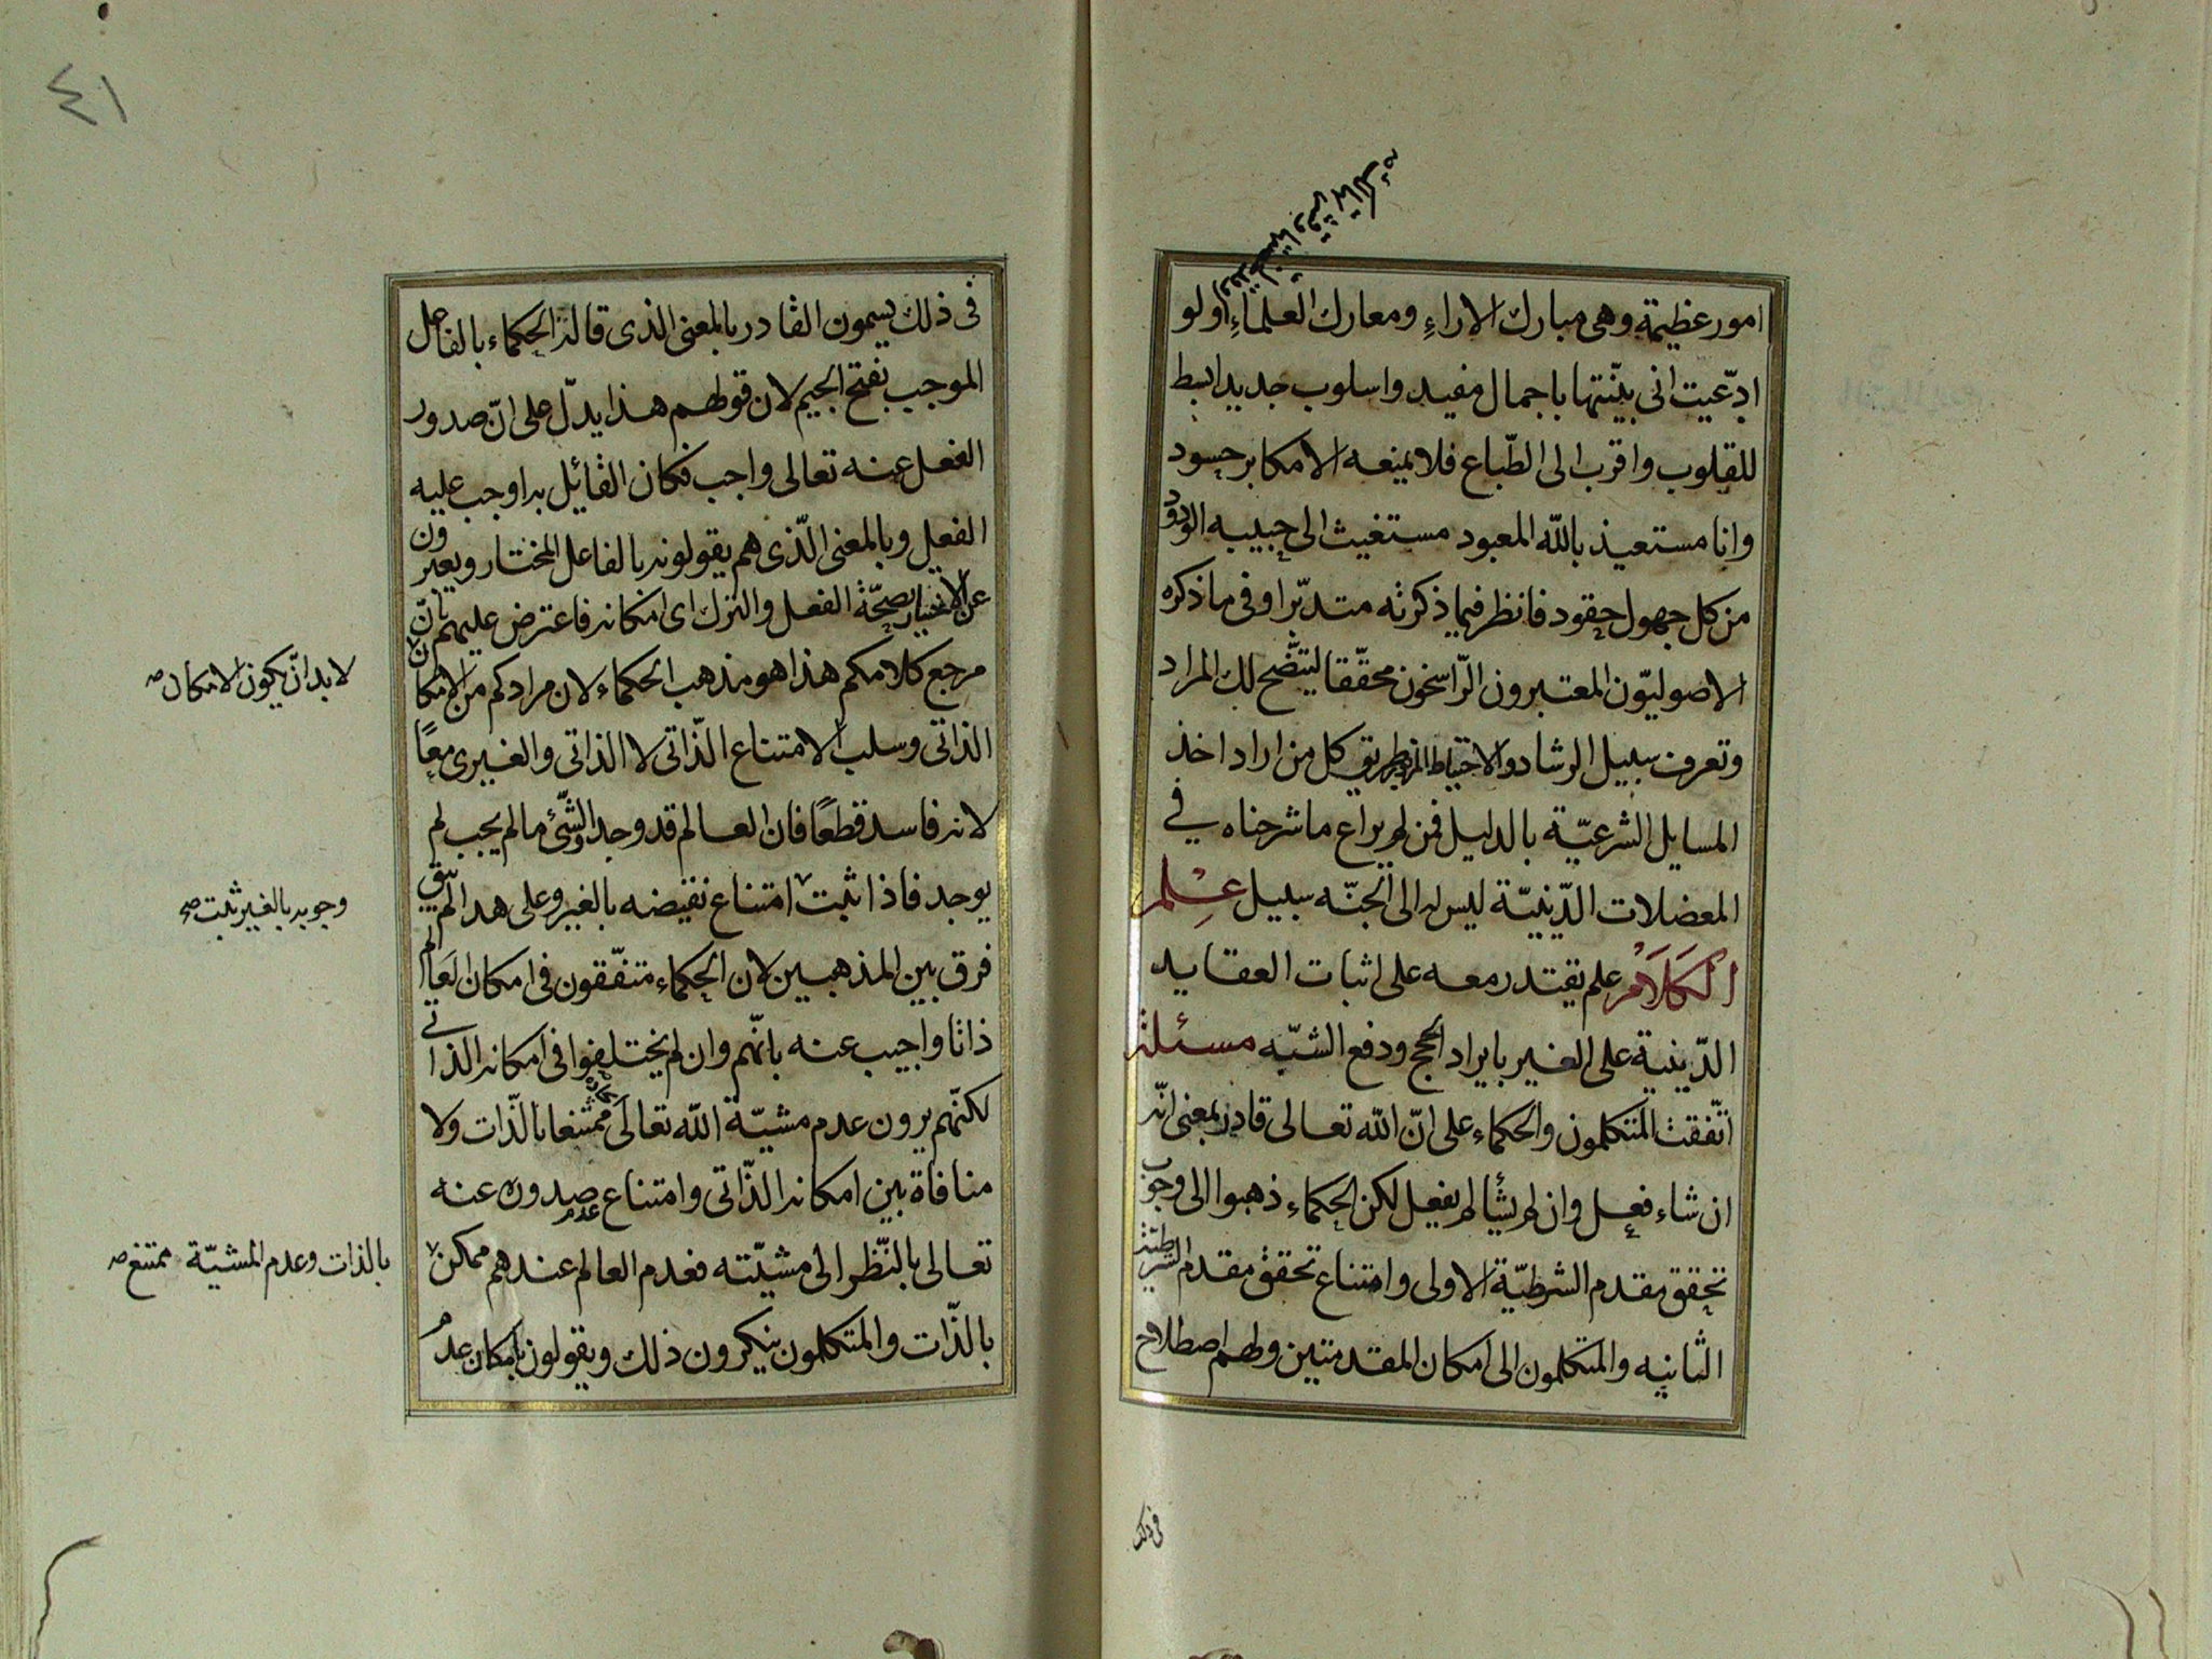 امور عظيمة وهى مبارك الاراءِ ومعارك العلماءِ ولو
ادّعيت انى بيّنتها باجمال مفيد واسلوب جديد ابسط
للقلوب واقرب الى الطّباع فلا يمنعه الا مكابر حسود
وانا مستعيذ باللّه المعبود مستغيث الى حبيبه الودود
من كل جهول حقود فانظر فيما ذكرته متدبّرا وفى ما ذكره
الاصوليّون المعتبرون الرّاسخون محقّقا ليتّضح لك المراد
وتعرف سبيل الرشاد والاحتياط طريق كل من اراد اخذ
المسايل الشرعيّة بالدليل فمن لم يراع ما شرحناه في
المعضلات الدّينيّة ليس له الى الجنّه سبيل عِلم
الكَلَام علم يقتدر معه على اثبات العقايد
الدّينية على الغير بايراد الحجج ودفع الشبّه مسئلة
اتّفقت المتكلمون والحكماء على انّ اللّه تعالى قادر بمعنى انّه
ان شاء فعل وان لم يشأ لم يفعل لكن الحكماء ذهبوا الى وجوب
تحقق مقدم الشرطيّة الاولى وامتناع تحقق مقدم الشرطيّة
الثانيه والمتكلمون الى امكان المقدمتين ولهم اصطلاح
فى ذلك
٤١
فى ذلك يسمون القادر بالمعنى الذى قاله الحكماء بالفاعل
الموجب بفتح الجيم لان قولهم هذا يدلّ على انّ صدور
الفعل عنه تعالى واجب فكان القائل به اوجب عليه
الفعل وبالمعنى الّذى هم يقولونه بالفاعل المختار ويعبرون
عن الاختيار بصحّة الفعل والترك اى امكانه فاعترض عليهم بانّ
مرجع كلامكم هذا هو مذهب الحكماء لان مرادكم من الامكان
لا بد ان يكون الامكان صه
الذاتى وسلب الامتناع الذّاتى لا الذاتى والغيرى معًا
لانه فاسد قطعًا فان العالم قد وجد والشّئ ما لم يجب لم
يوجد فاذا ثبت امتناع نقيضه بالغير وعلى هذا لم يبق
وجوبه بالغير ثبت صح
فرق بين المذهبين لان الحكماء متفّقون فى امكان العالم
ذاتا واجيب عنه بانّهم وان لم يختلفوا فى امكانه الذاتى
لكنّهم يرون عدم مشيّة اللّه تعالى ممتنعا بالّذات ولا
منافاة بين امكانه الذّاتى وامتناع عدم صدوره عنه
تعالى بالنّظر الى مشيّته فعدم العالم عندهم ممكن
بالذات وعدم المشيّة ممتنع صه
بالذّات والمتكلمون ينكرون ذلك ويقولون بامكان عدم